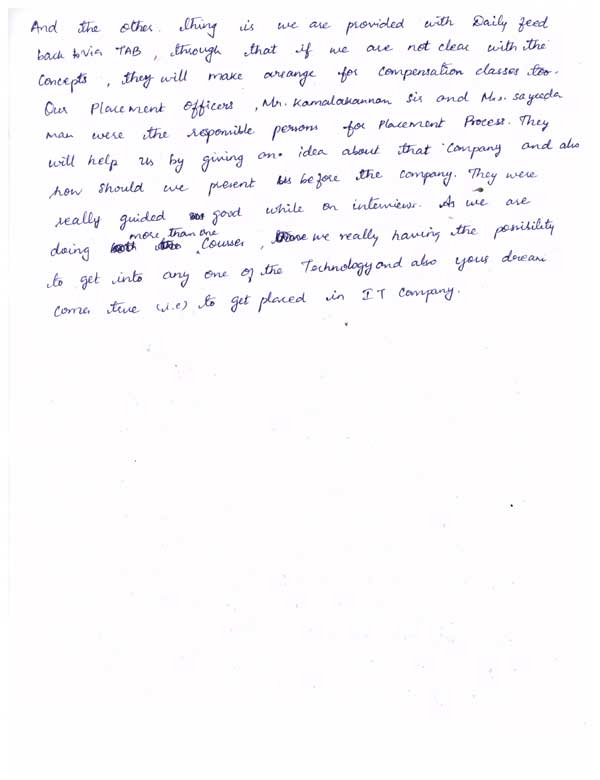 And the other thing is we are provided with Daily feed
back via TAB, through that if we are not clear with the
Concepts, they will make arrange for Compensation classes too.
Our Placement Officers, Mr. Kamalakannan Sir and Mrs. Sayeeda
mam were the responsible persons for Placement Process. They
will help us by giving an idea about that Company and also
how should we present us before the Company. They were
really guided good while on interviews. As we are
doing more than one Courses, we really having the possibility
to get into any one of the Technology and also your dream
comes true (i.e) to get placed in IT Company.